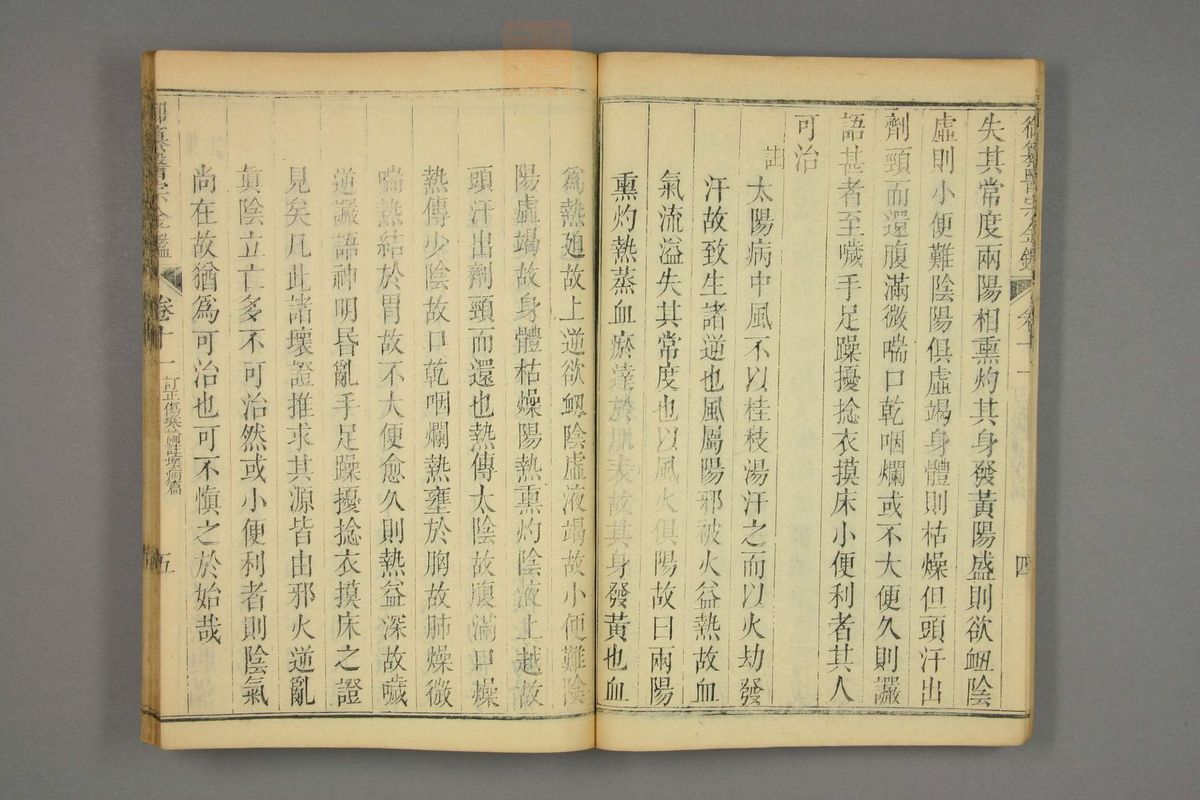 御纂醫宗金鑑 卷十一 四
失其常度兩陽相熏灼其身發黃陽盛則欲衄陰
虛則小便難陰陽俱虛竭身體則枯燥但頭汗出
劑頸而還腹滿微喘口乾咽爛或不大便久則讝
語甚者至噦手足躁擾捻衣摸床小便利者其人
可治
註
太陽病中風不以桂枝湯汗之而以火劫發
汗故致生諸逆也風屬陽邪被火益熱故血
氣流溢失其常度也以風火俱陽故曰兩陽
熏灼熱蒸血瘀達於肌表故其身發黃也血
為熱廹故上逆欲衂陰虛液竭故小便難陰
陽虛竭故身體枯燥陽熱熏灼陰液上越故
頭汗出劑頸而還也熱傳太陰故腹滿口燥
熱傳少陰故口乾咽爛熱壅於胸故肺燥微
喘熱結於胃故不大便愈久則熱益深故噦
逆讝語神明昏亂手足躁擾捻衣摸床之證
見矣凡此諸壞證推求其源皆由邪火逆亂
眞陰立亡多不可治然或小便利者則陰氣
尚在故猶為可治也可不慎之於始哉
御纂醫宗金鑑 卷十一 訂正傷寒論註壞病篇 五